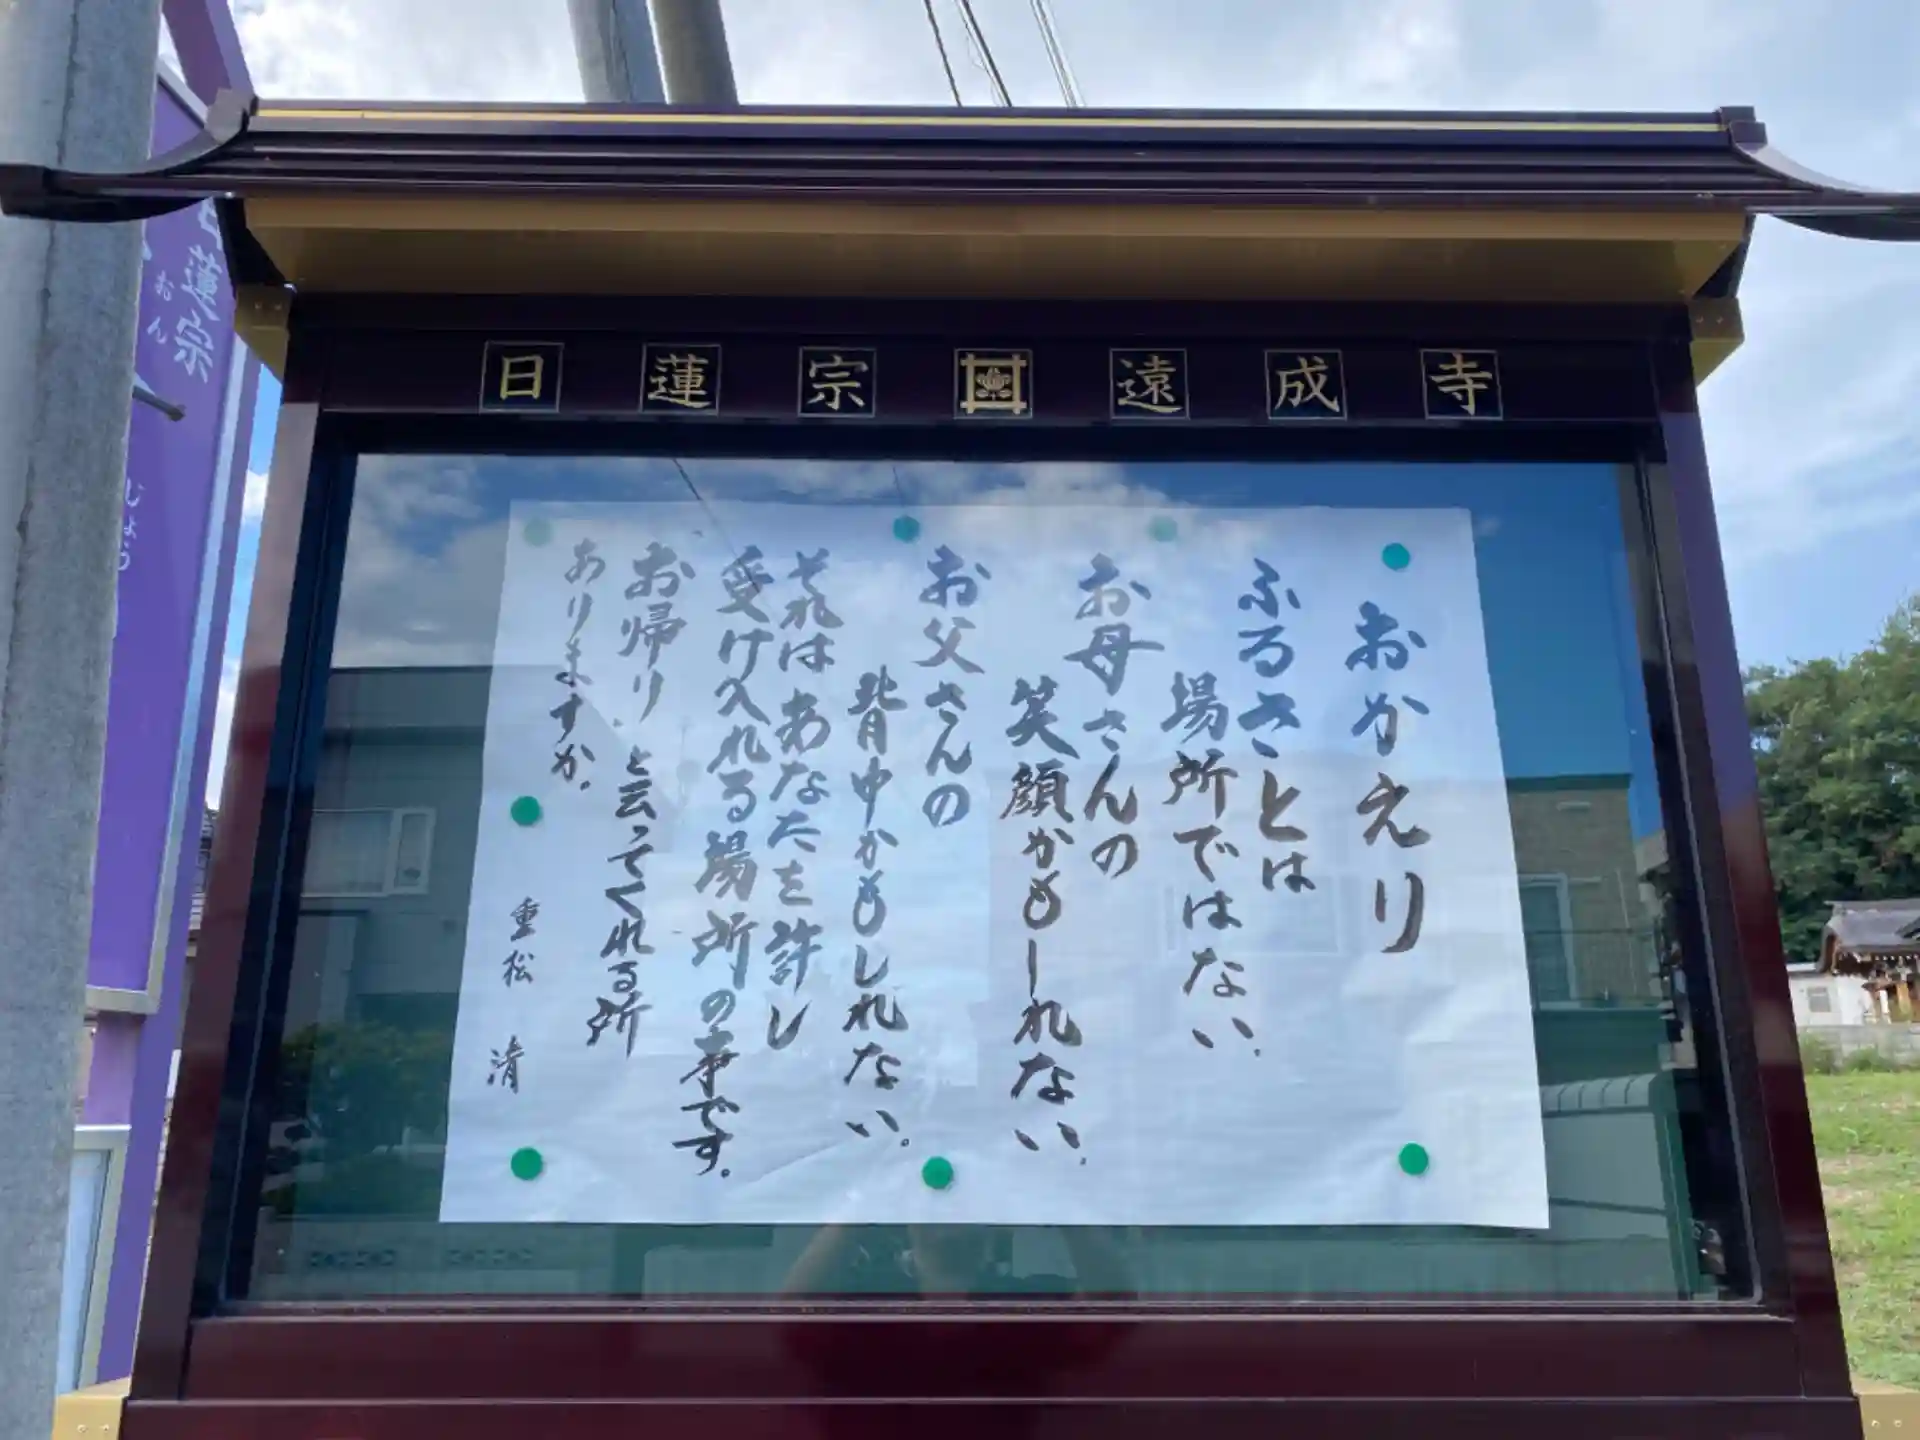 日蓮宗 遠成寺
おかえり
ふるさとは
場所ではない.
お母さんの
笑顔かもしれない.
お父さんの
背中かもしれない。
それはあなたを許し
受け入れる場所の事です。
お帰り.と云ってくれる所
ありますか.
重松 清
日蓮宗
おん
じょう